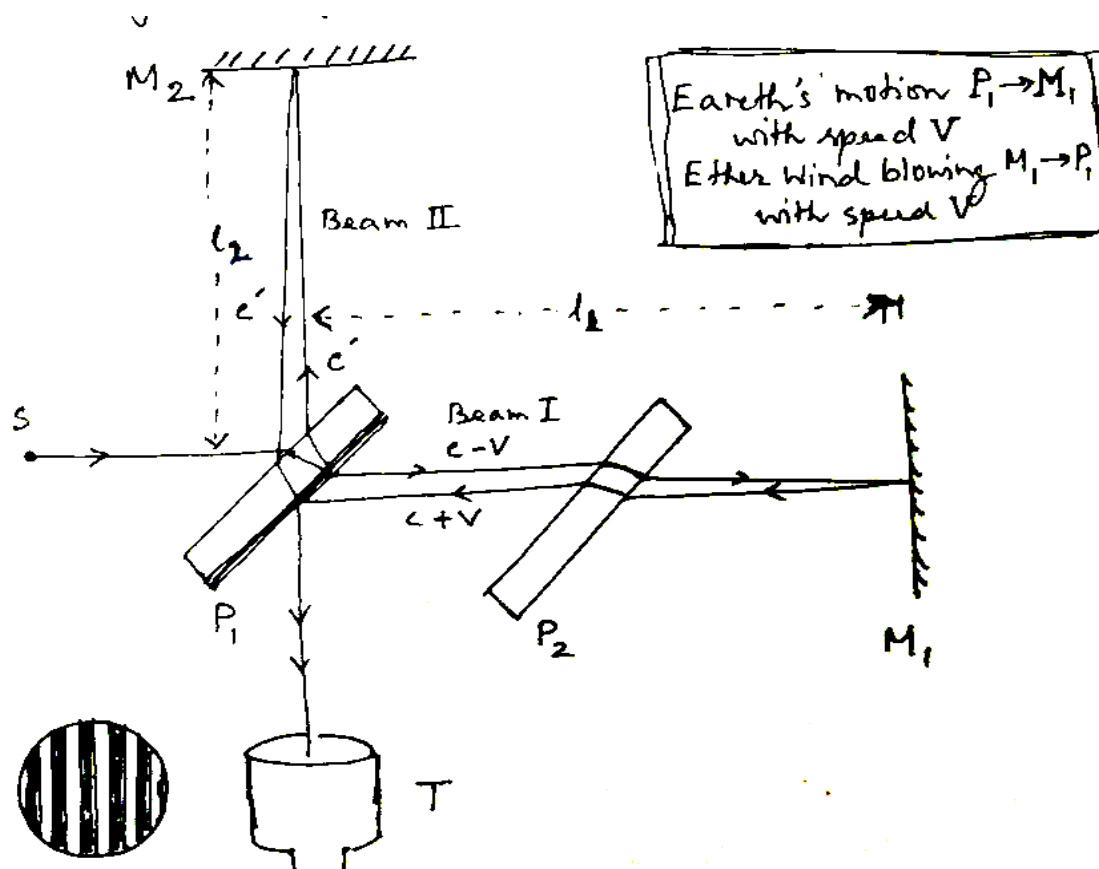 M₂
Eareth's motion P₁→M₁
with speed V
Ether wind blowing M₁→P₁
with speed V
Beam II
l₂
c'
l₁
c'
S
Beam I
c-V
c+V
P₁
P₂
M₁
T